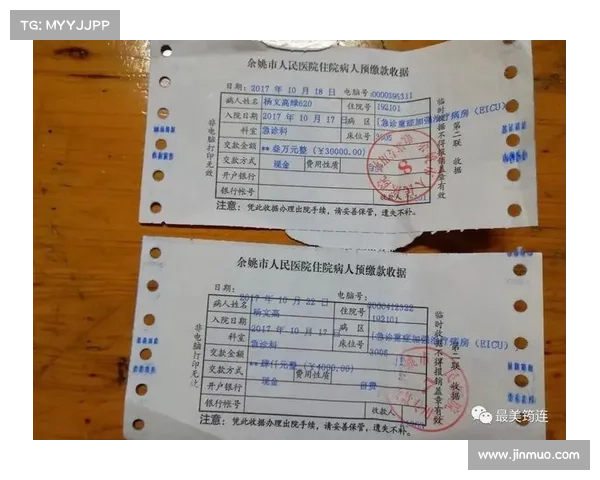 TG: MYYJJPP
余姚市人民医院住院病人预缴款收据
日期: 2017 年 10 月 18 日 电脑号:0000395311
病人姓名 杨文高绿620 住院号 192101
入院日期 2017 年 10 月 17 日 病 区 [急诊重症加强 病房 (EICU)
科室 急诊科 床位号 3005
交款金额 ** 叁万元整 (￥30000.00)
交款方式 现金 费用性质
开户银行
银行帐号 收款人
注意: 凭此收据办理出院手续,请妥善保管,遗失不补。
非电脑打印无效
临时收据不得报销盖章有效
第二联 收据
余姚市人民医院住院病人预缴款收据
日期: 2017 年 10 月 22 日 电脑号: 0000412322
病人姓名 杨文高 住院号 192101
入院日期 2017 年 10 月 17 日 病 区 [急诊重症加强 病房 (EICU)
科室 急诊科 床位号 3005
交款金额 ** 肆仟元整 (￥4000.00)
交款方式 现金 费用性质 自费
开户银行
银行帐号 收款人
注意: 凭此收据办理出院手续,请妥善保管,遗失不补。
非电脑打印无效
临时收据不得报销盖章有效
第二联 收据
最美筠连
www.jinmuo.com